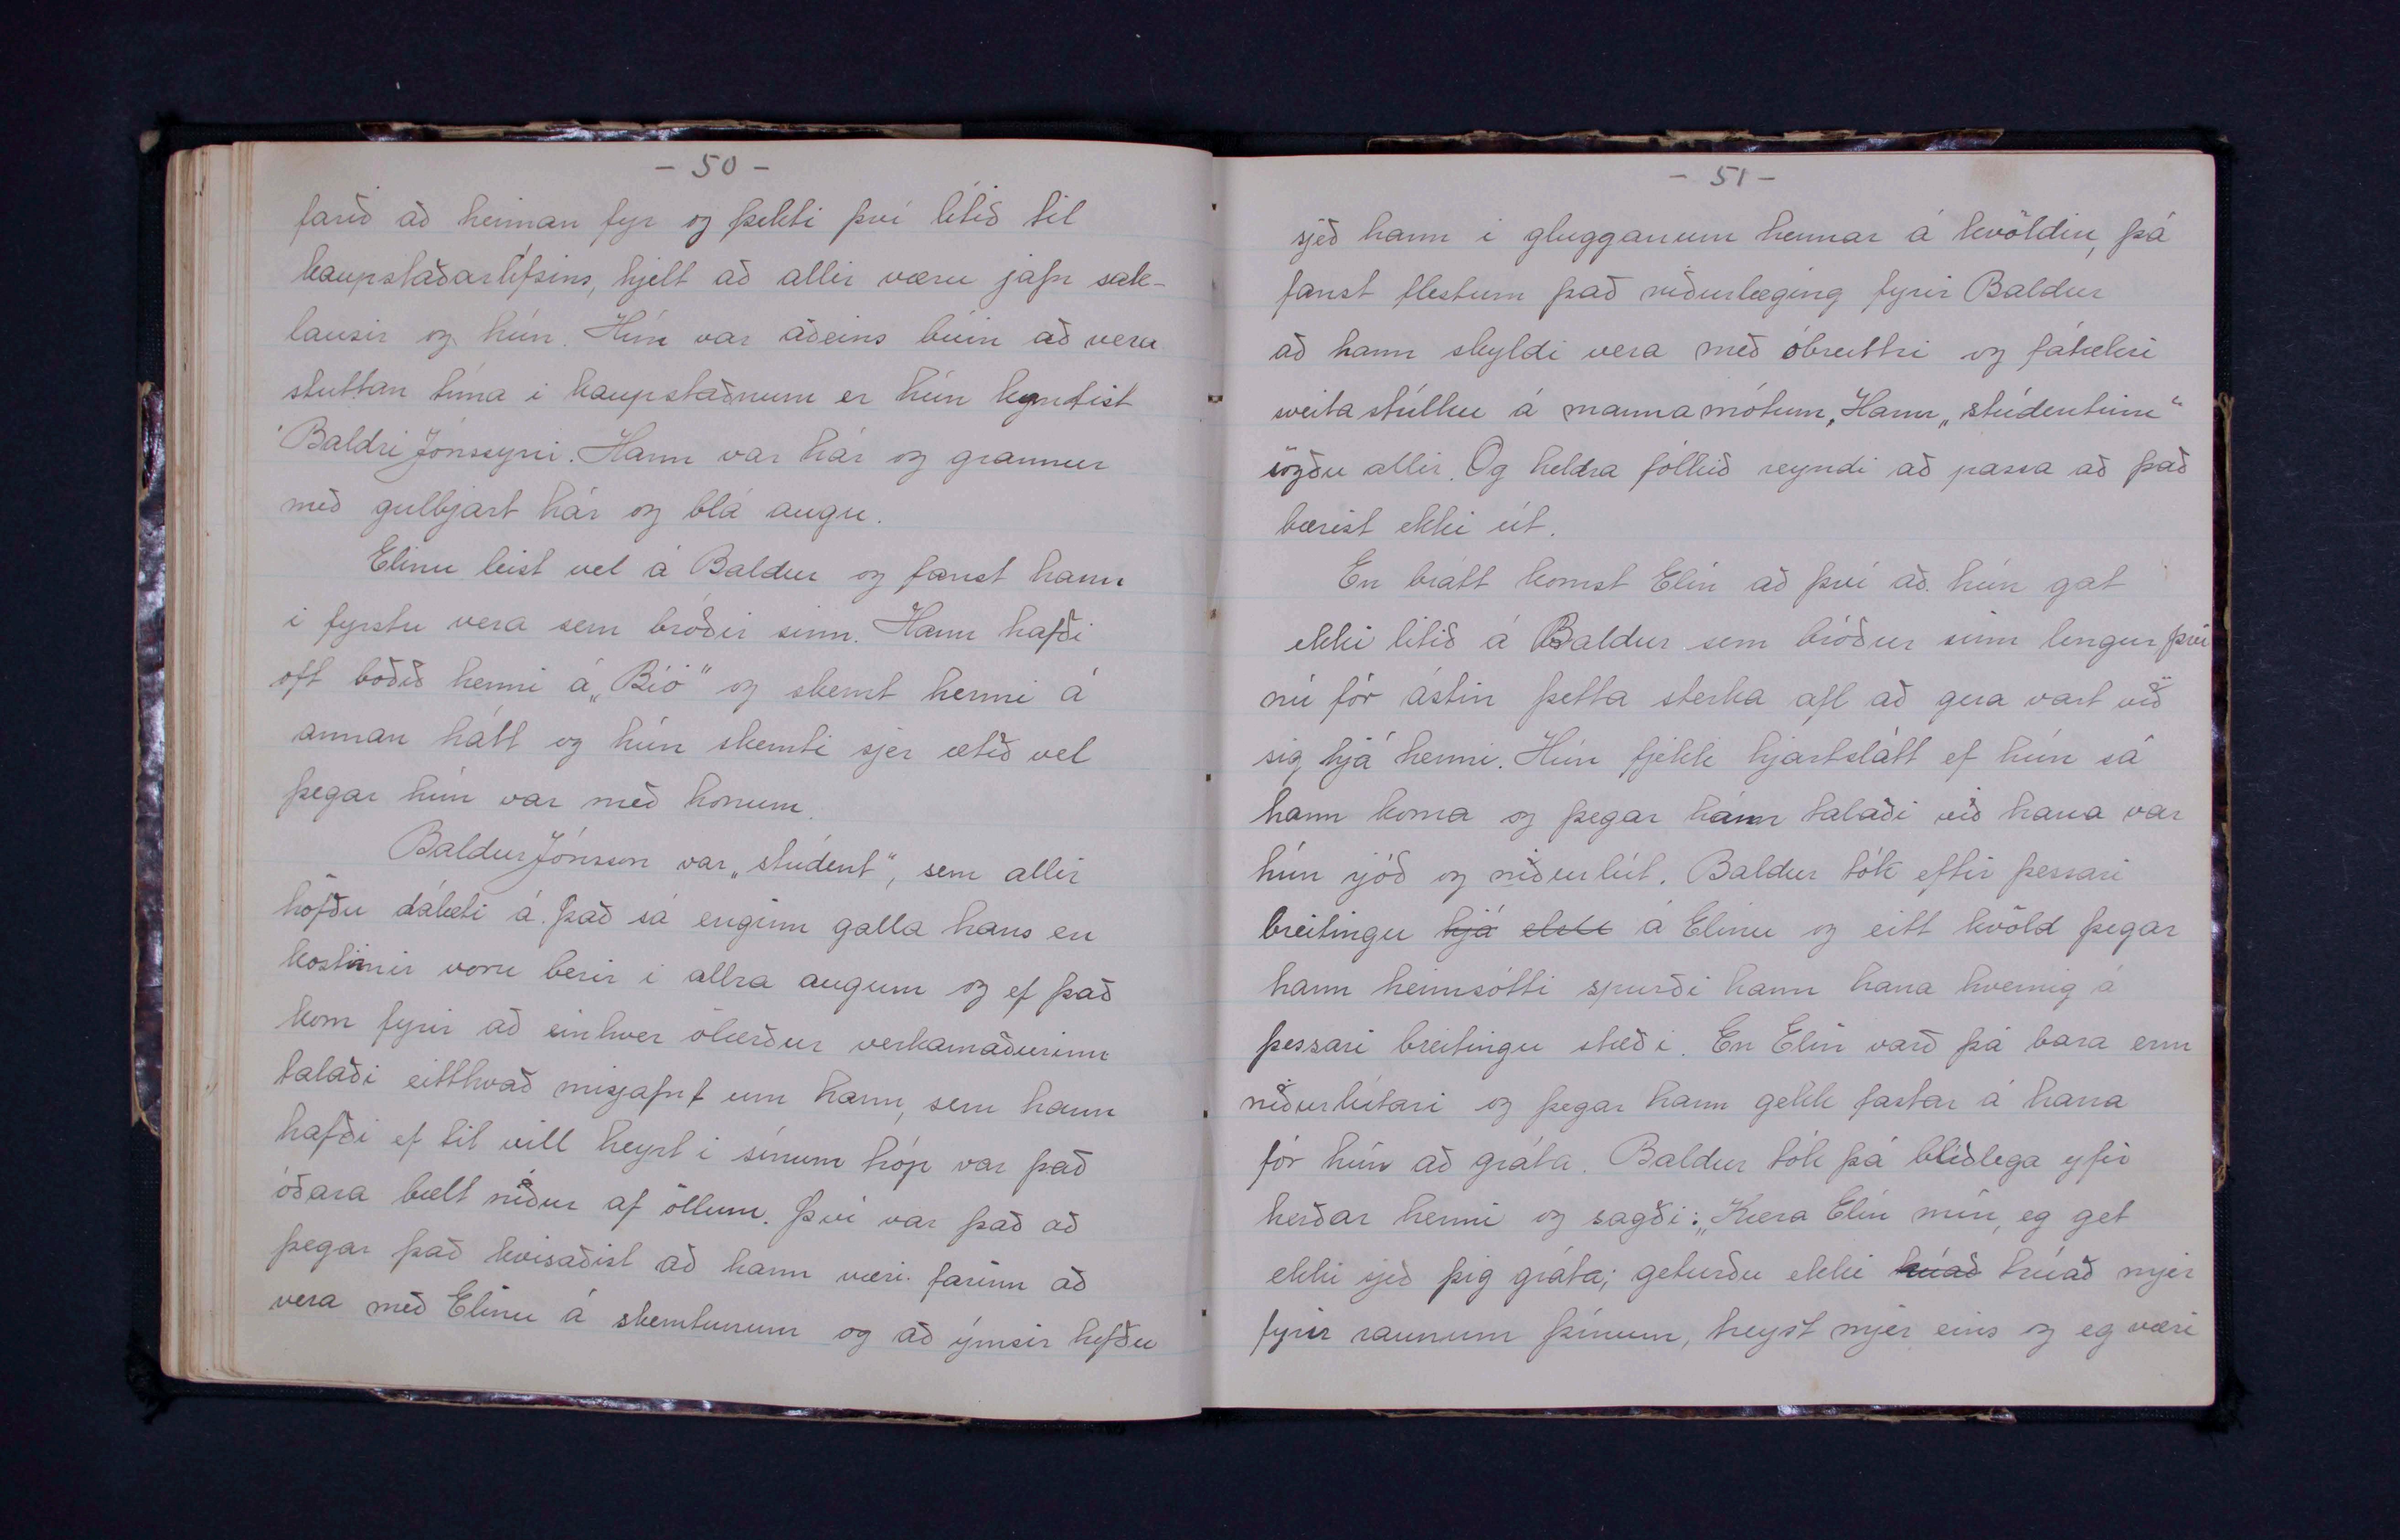 - 50 -
farið að heiman fyr og þekti því lítið til
kaupstaðarlífsins, hjelt að allir væru jafn sak-
lausir og hún. Hún var aðeins búin að vera
stuttan tíma i kaupstaðnum er hún kyntist
Baldri Jónssyni. Hann var hár og grannur
með gulbjart hár og blá augu.
Elínu leist vel á Baldur og fanst hann
i fyrstu vera sem bróðir sinn. Hann hafði
oft boðið henni á „Bíó" og skemt henni á
annan hátt og hún skemti sjer ætið vel
þegar hún var með honum.
Baldur Jónsson var „stúdent", sem allir
höfðu dálæti á. Það sá enginn galla hans en
kostirnir voru berir i allra augum og ef það
kom fyrir að einhver ólærður verkamaðurinn
talaði eitthvað misjafnt um hann, sem hann
hafði ef til vill heyrt i sínum hóp var það
óðara bælt niður af öllum. Því var það að
þegar það kvisaðist að hann væri farinn að
vera með Elínu á skemtunum og að ýmsir hefðu
- 51 -
sjeð hann i glugganum hennar á kvöldin, þá
fanst flestum það niðurlæging fyrir Baldur
að hann skyldi vera með óbreittri og fátækri
sveitastúlku á mannamótum, Hann „stúdentinn"
sögðu allir. Og heldra fólkið reyndi að passa að það
bærist ekki út.
En brátt komst Elín að því að hún gat
ekki litið á Baldur sem bróður sinn lengur því
nú fór ástin þetta sterka afl að gera vart við
sig hjá henni. Hún fjekk hjartslátt ef hún sá
hann koma og þegar hann talaði við hana var
hún rjóð og niðurlút. Baldur tók eftir þessari
breitingu hjá á Elínu og eitt kvöld þegar
hann heimsótti spurði hann hana hvernig á
þessari breitingu stæði. En Elín varð þá bara enn
niðurlútari og þegar hann gekk fastar á hana
fór hún að gráta. Baldur tók þá blíðlega yfir
herðar henni og sagði: „Kæra Elín mín, eg get
ekki sjeð þig gráta; geturðu ekki trúað mjer
fyrir raunum þínum, treyst mjer eins og eg væri